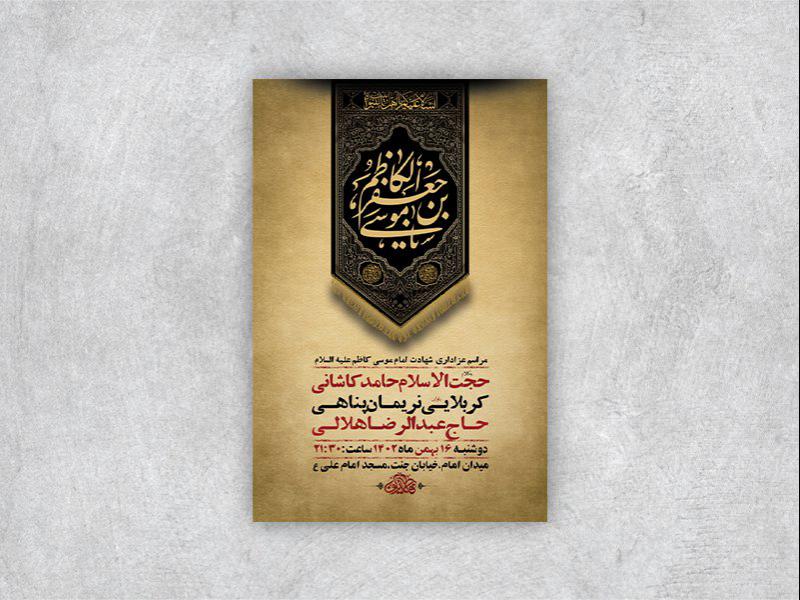 یا موسی
بن جعفر
الکاظم
مراسم عزاداری شهادت امام موسی کاظم علیه السلام
حجت الاسلام حامد کاشانی
کربلایی نریمان پناهی
حاج عبدالرضا هلالی
دوشنبه ۱۶ بهمن ماه ۱۴۰۲ ساعت: ۲۱:۳۰
میدان امام، خیابان جنت، مسجد امام علی ع